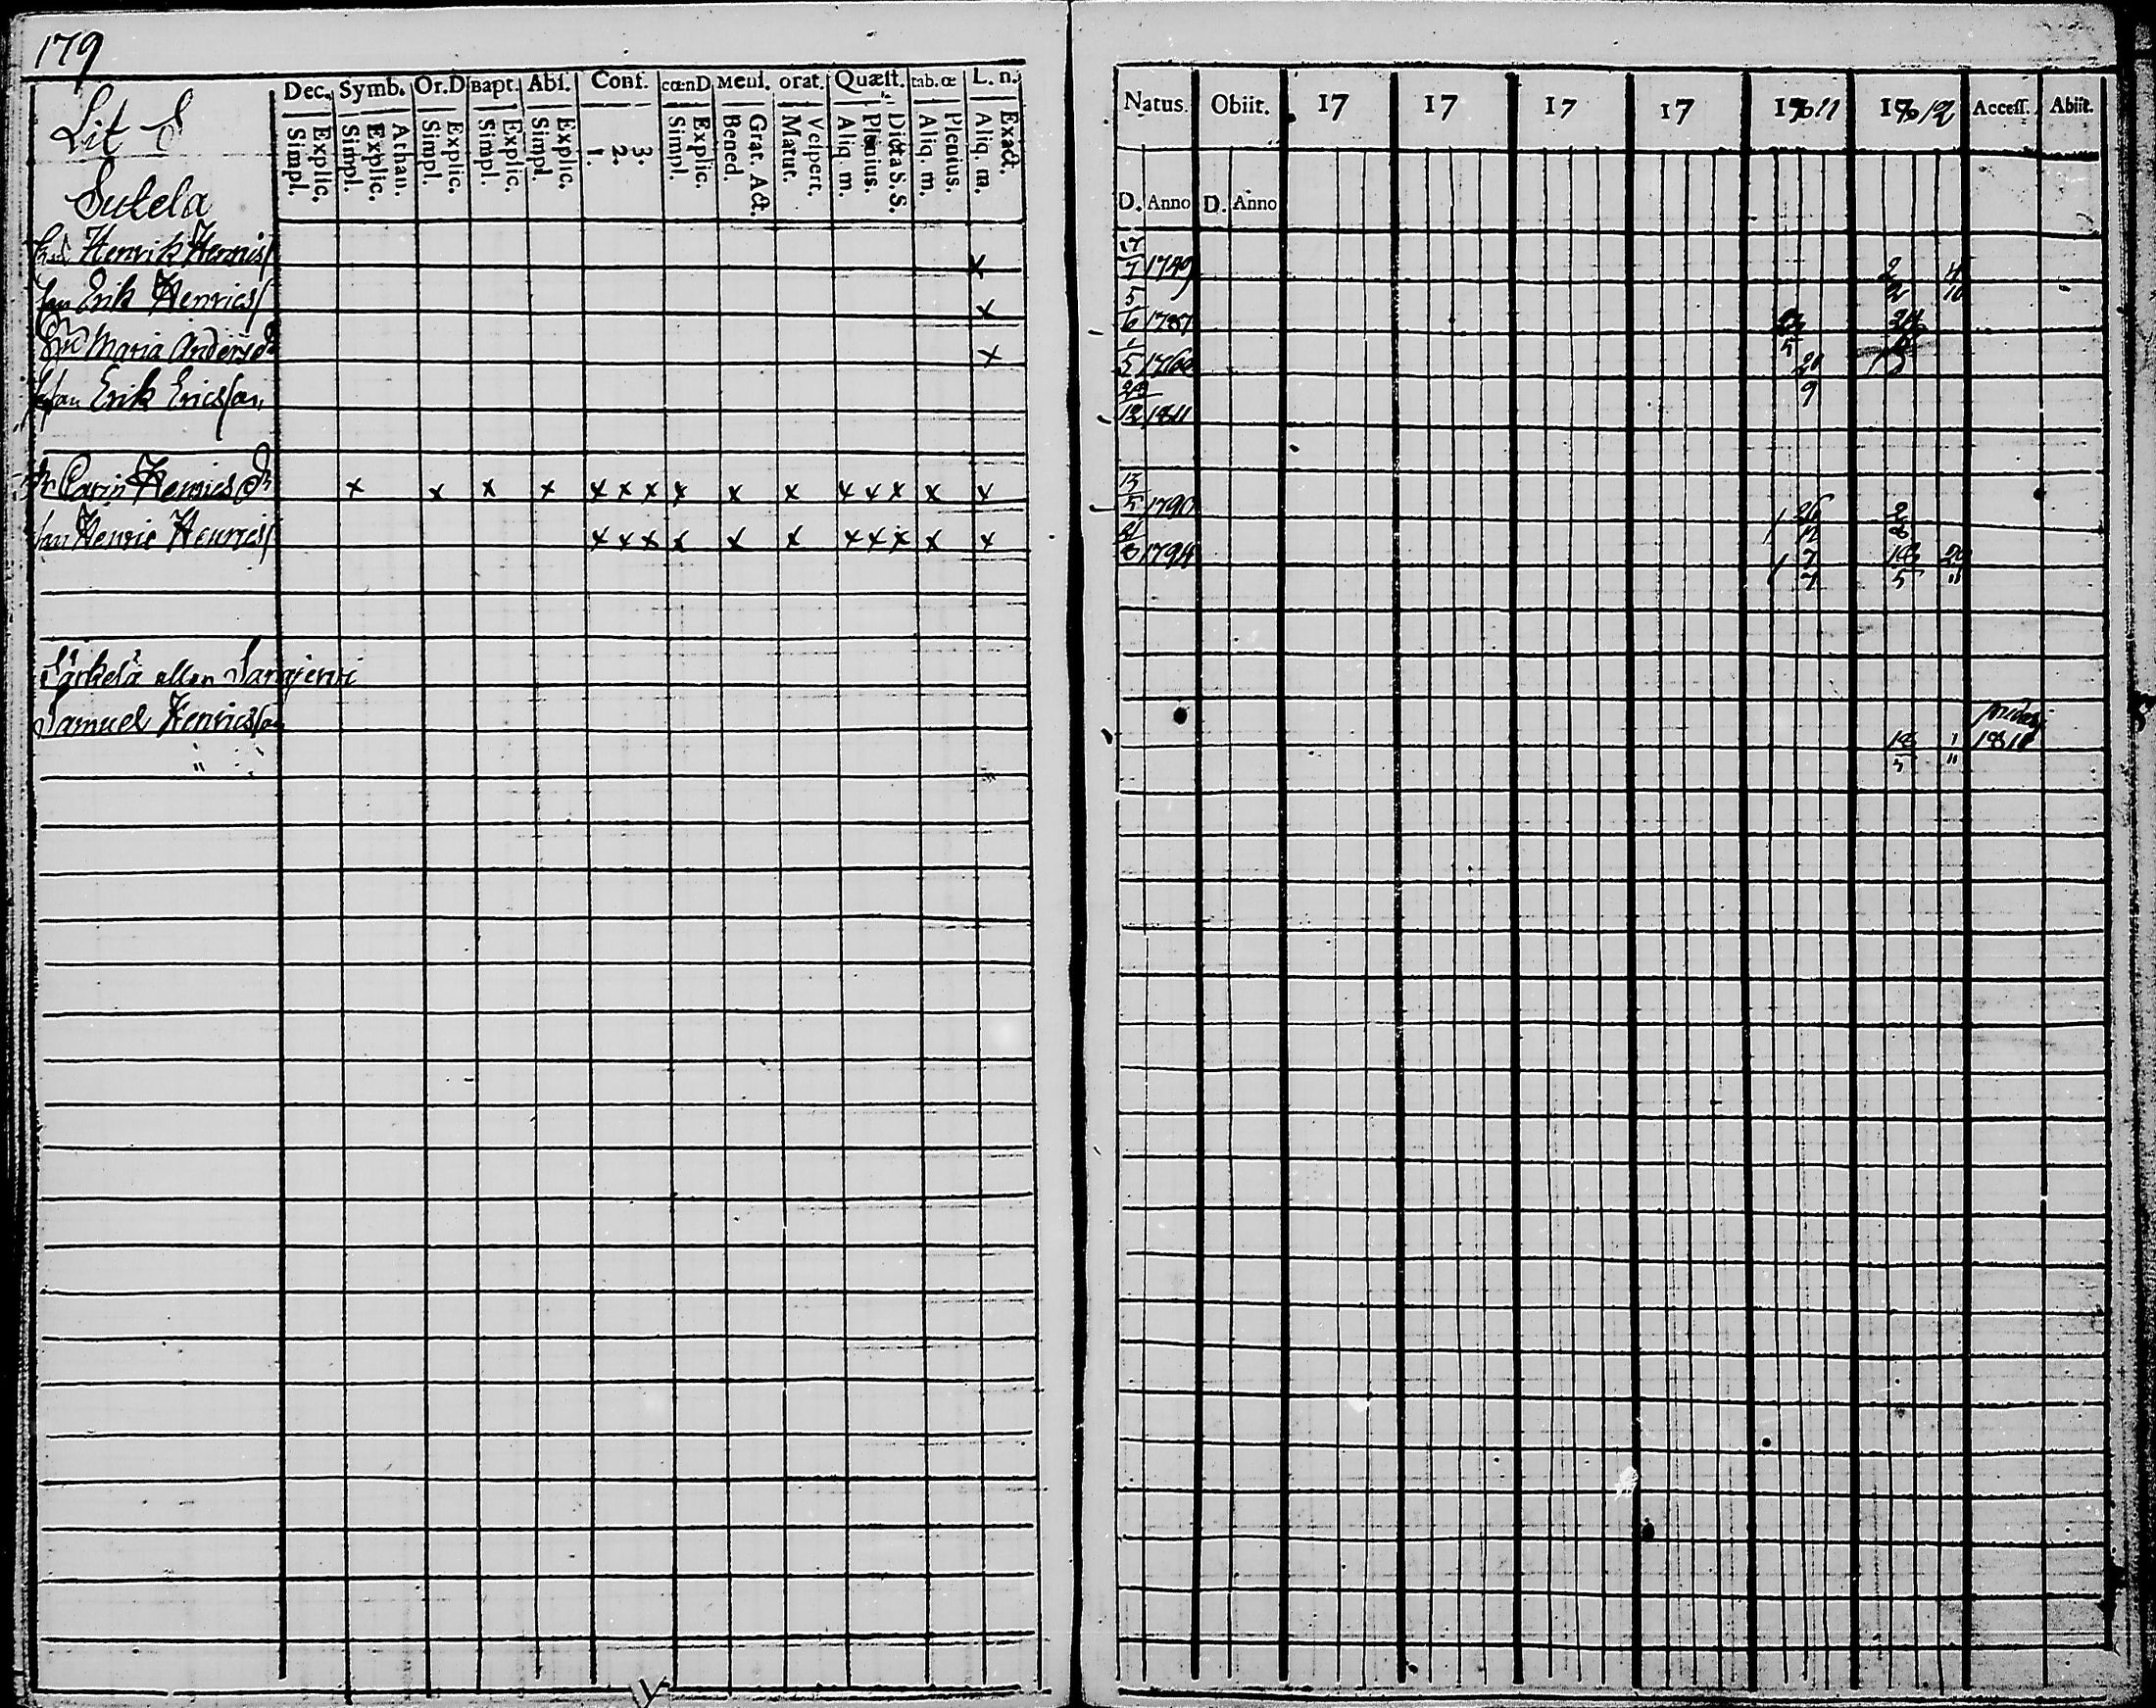 179
Dec. Symb. Or.D Bapt. Abſ. Conf. cœnD Menſ. orat. Quæſt. tab.œ L. n.
Simpl. Explic. Simpl. Explic. Athan. Simpl. Explic. Simpl. Explic. Simpl. Explic. 1. 2. 3. Simpl. Explic. Bened. Grat. Act. Matut. Veſpert. Aliq. m. Plenius. Dicta S. S. Aliq. m. Plenius. Aliq. m. Exact.
Lit S
Sutela
Henrik Henricſ x
Erik Henricsſ x
Maria Andersd x
Erik Ericsſon
Carin Henricsdr x x x x x x x x x x x x x x x
Henric Henricsſ x x x x x x x x x x x
Särkelä eller Sarajerwi
Samuel Henricsſon
Natus. Obiit. 17 17 17 17 1811 1812 Acceſſ. Abiit.
D. Anno D. Anno
17/7 1749 4/10
5/6 1787
1/5 1760 21/9
1811
13/5 1790 26/12 2/8
8 1794 7/7 18/5 20/11
18/5 1/11 1811